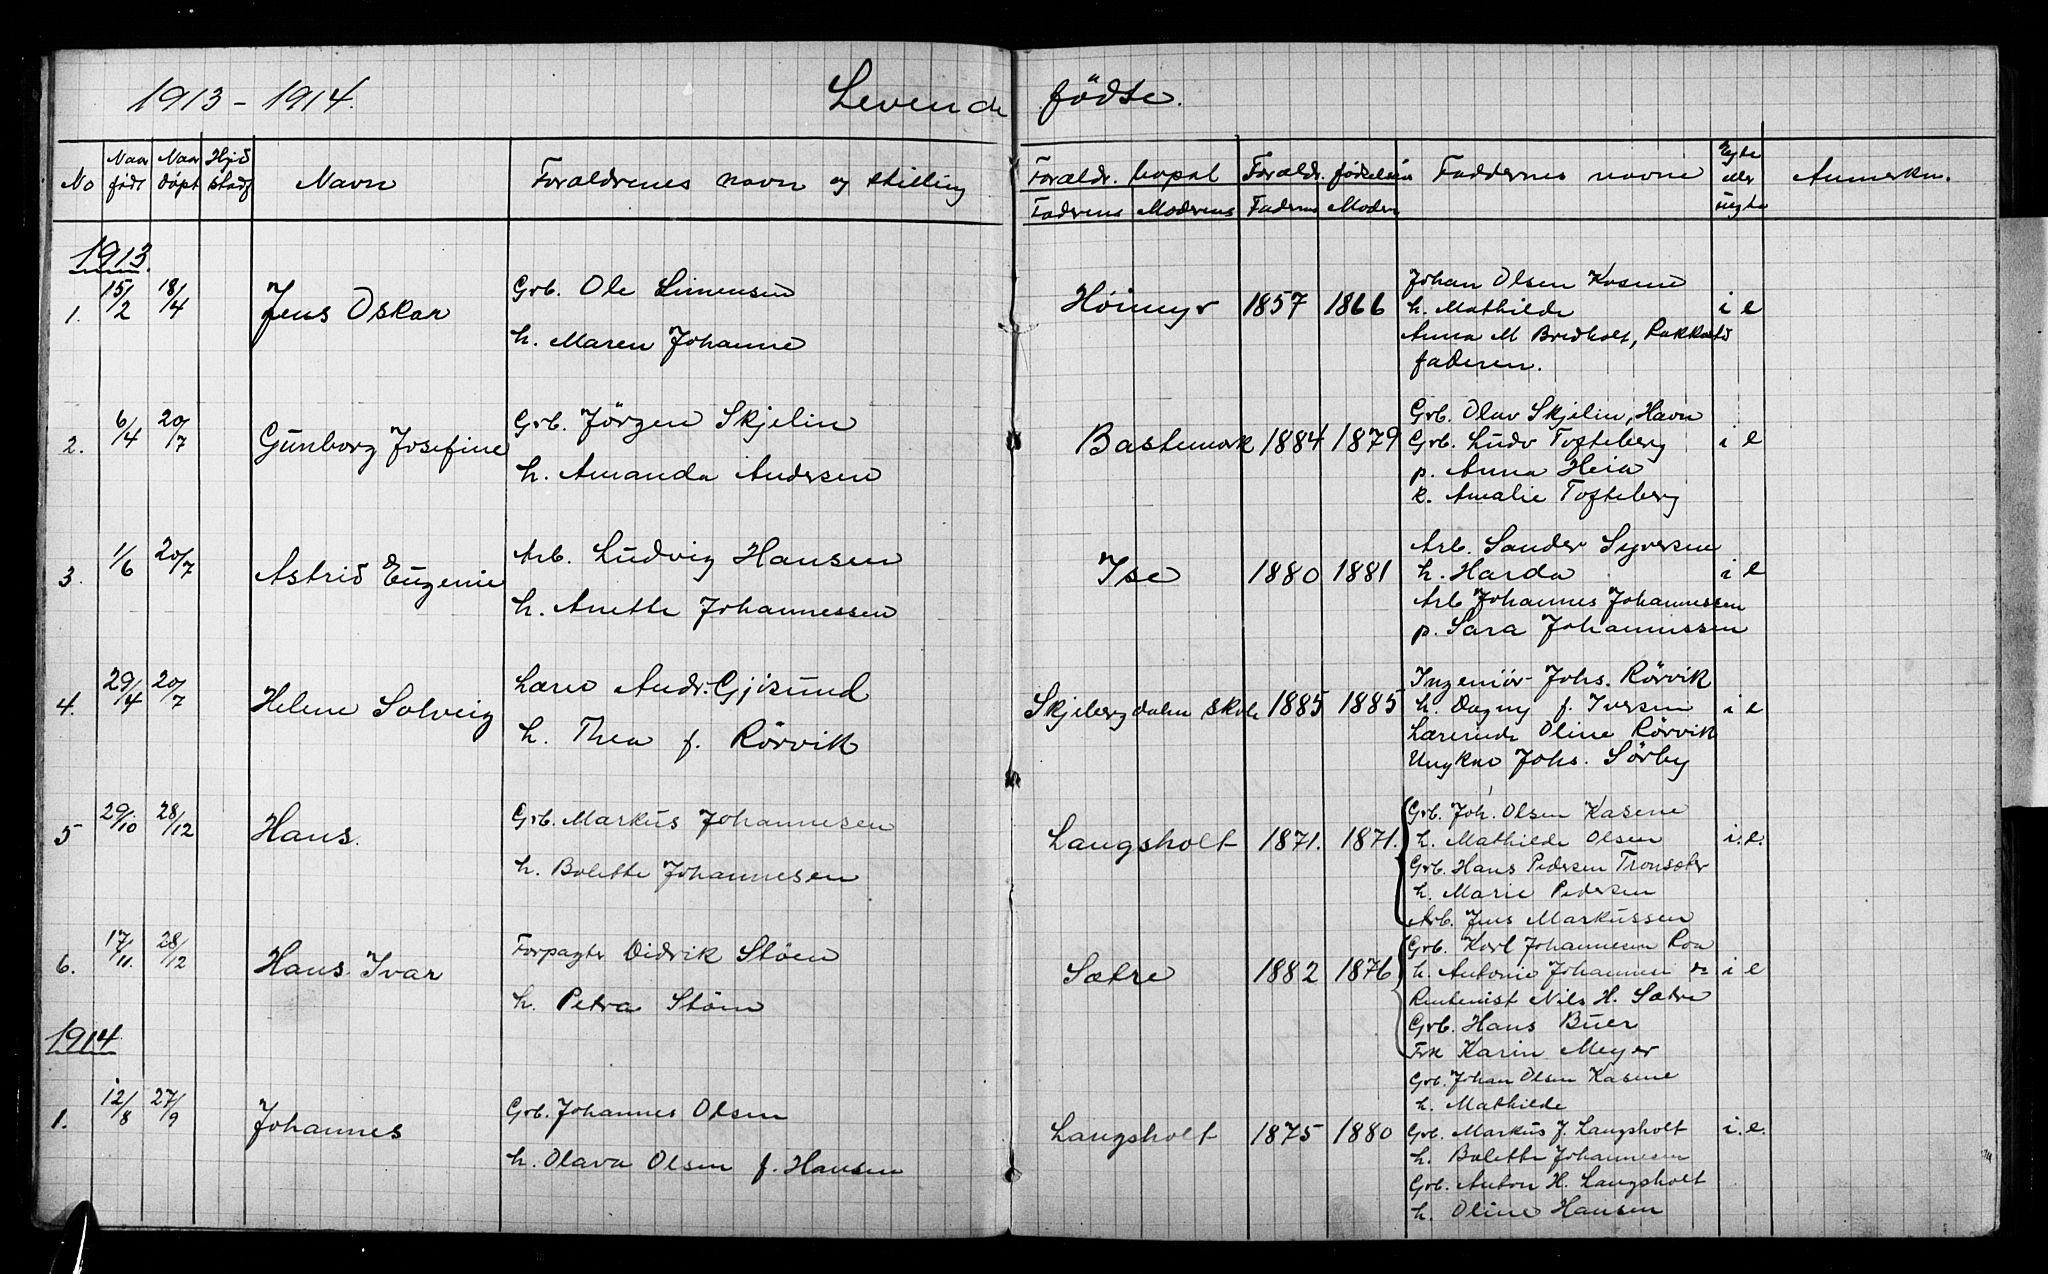 1913 - 1914. Levende fødte.
No Naar födt Naar döpt Hjd stadf Navn Forældrenes navn og stilling Forældr. bopæl Forældr. födselsaar Faddernes navne Egte eller uegte Anmerkn.
Faderens Moderens Faderens Moder
1913.
1. 15/2 18/4 Jens Oskar
Grb. Ole Simensen
h. Maren Johanne
Höimyr 1857 1866
Johan Olsen Kasene
h. Mathilde
Anna M Bredholt, Rakkestd
faderen.
i e
2. 6/4 20/7 Gunborg Josefine
Grb. Jörgen Skjelin
h. Amanda Andersen
Bastemork 1884 1879
Grb. Olav Skjelin, Havn
Grb. Ludv Tofteberg
p. Anna Heia
k. Amalie Tofteberg
i e
3. 1/6 20/7 Astrid Eugenie
Arb. Ludvig Hansen
h. Anette Johannessen
Ise 1880 1881
Arb. Sander Syversen
h. Harda
Arb Johannes Johannessen
p. Sara Johannessen
i e
4. 29/4 20/7 Helene Solveig
Lærer Andr. Gjisund
h. Thea f. Rörvik
Skjebergdalen skole 1885 1885
Ingeniör Johs. Rörvik
h. Dagny f. Iversen
Lærerinde Oline Rörvik
Ungkar Johs. Sörby
i e
5 29/10 28/12 Hans.
Grb. Markus Johannesen
h. Bolette Johannesen
Langsholt 1871. 1871.
Grb. Joh. Olsen Kasene
h. Mathilde Olsen
Grb. Hans Pedersen
h. Marie Pedersen
Arb. Jens Markussen
i. e.
6. 17/11. 28/12 Hans Ivar
Forpagter Didrik Stöen
h. Petra Stöen
Sætre 1882 1876
Grb. Karl Johannesen Roa
h. Antonie Johannesen
Rentenist Nils H. Sætre
Grb. Hans Buer
Frk Karin Meyer
i e
1914
1. 12/8 27/9 Johannes
Grb. Johannes Olsen
h. Olava Olsen f. Hansen
Langsholt 1875 1880
Grb. Johan Olsen Kasene
h. Mathilde
Grb. Markus J. Langsholt
h. Bolette Johannesen
Grb. Anton H. Langsholt
h. Oline Hansen
i. e.